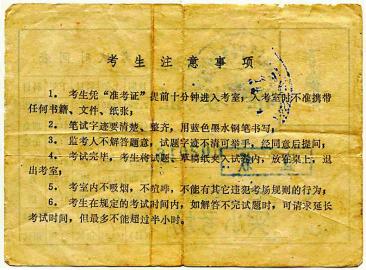 考生注意事项
1．考生凭“准考证”提前十分钟进入考室，入考室时不准携带
任何书籍、文件、纸张；
2．笔试字迹要清楚、整齐，用蓝色墨水钢笔书写；
3．监考人不解答题意，试题字迹不清可举手，经同意后提问；
4．考试完毕，考生将试题、草稿纸夹入试卷内，放在桌上，退
出考室；
5．考室内不吸烟，不喧哗，不能有其它违犯考场规则的行为；
6．考生在规定的考试时间内，如解答不完试题时，可请求延长
考试时间，但最多不能超过半小时。